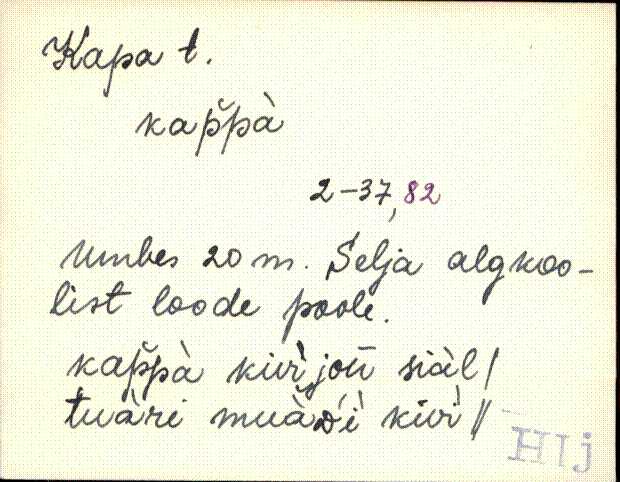 Kapa t.
kap̆pà
2-37,82
Umbes 20 m. Selja algkoo-
list loode poole.
kap̆pà kivì joū siàl /
tuàri muà kivì //
HJj